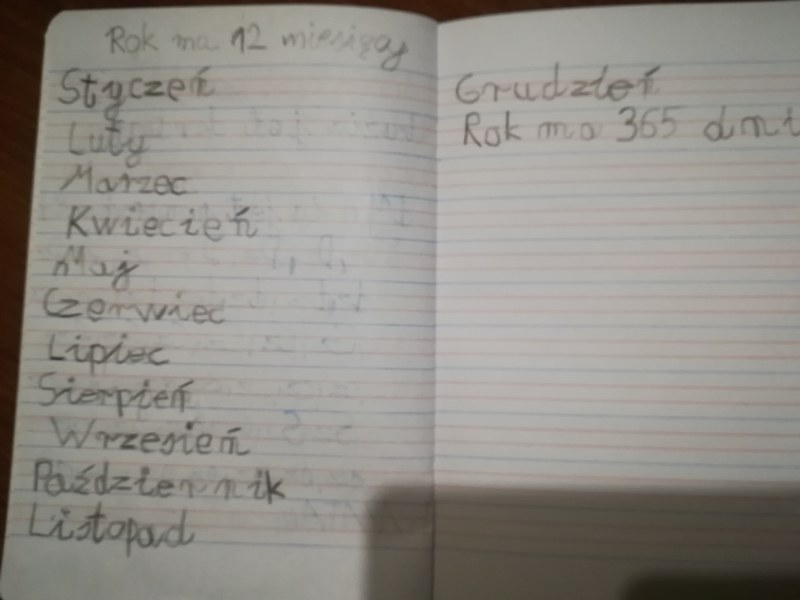 Rok ma 12 miesięcy
Styczeń
Luty
Marzec
Kwiecień
Maj
Czerwiec
Lipiec
Sierpień
Wrzesień
Październik
Listopad
Grudzień
Rok ma 365 dni